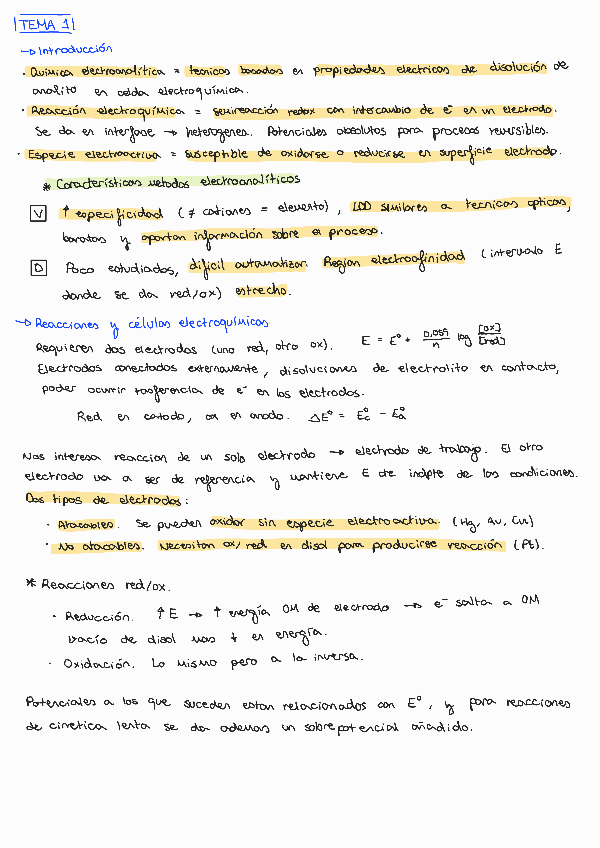 TEMA 1
→ Introducción
· Química electroanalítica = técnicas basadas en propiedades electricas de disolución de
analito en celda electroquímica.
· Reacción electroquímica = semireacción redox con intercambio de e⁻ en un electrodo.
Se da en interfase → heterogenea. Potenciales absolutos para procesos reversibles.
· Especie electroactiva = susceptible de oxidarse o reducirse en superficie electrodo.
* Características metodos electroanalíticos
V ↑ especificidad (≠ cationes = elemento), LOD similares a tecnicas opticas,
baratas y aportan información sobre el proceso.
D Poco estudiados, dificil automatizar. Region electroafinidad (intervalo E
donde se da red/ox) estrecho.
→ Reacciones y células electroquímicas
Requieren dos electrodos (uno red, otro ox). E = E° + 0.059/n log [ox]/[red]
Electrodos conectados externamente, disoluciones de electrolito en contacto,
poder ocurrir trasferencia de e⁻ en los electrodos.
Red en catodo, ox en anodo. ΔE° = E°c − E°a
Nos interesa reaccion de un solo electrodo → electrodo de trabajo. El otro
electrodo va a ser de referencia y mantiene E cte indpte de las condiciones.
Dos tipos de electrodos:
· Atacables. Se pueden oxidar sin especie electroactiva. (Hg, Au, Cu)
· No atacables. Necesitan ox/red en disol para producirse reacción (Pt).
* Reacciones red/ox.
· Reducción. ↑E → ↑ energía OM de electrodo → e⁻ salta a OM
vacío de disol mas ↓ en energía.
· Oxidación. Lo mismo pero a la inversa.
Potenciales a los que suceden estan relacionados con E°, y para reacciones
de cinetica lenta se da ademas un sobrepotencial añadido.